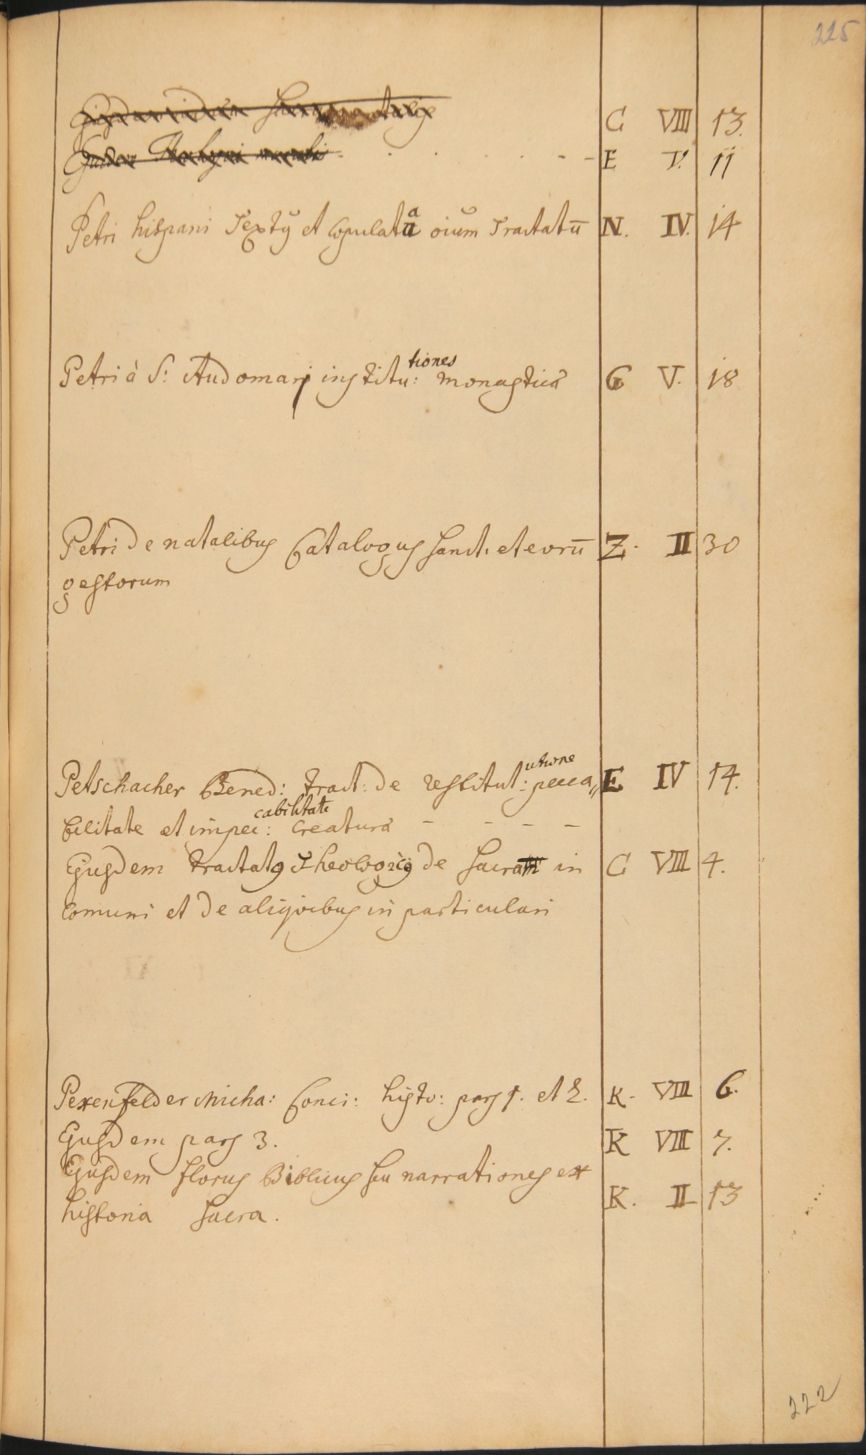 225
C VIII 13.
E V. 11
Petri hispani Textꝰ et copulata oium Tractatū N. IV. 14
Petri à S: Audomarj institu:tiones monasticæ G V. 18
Petri De natalibus Catalogus sanct. et eorū Z. II 30
gestorum
Petschacher Bened: tract: de restitut:utione pecca„ E IV 14.
bilitate et impec:cabilitate creaturæ – – – –
Ejusdem tractatꝰ Theologicꝰ de Sacram in C VIII 4.
comuni et de aliquibus in particulari
Pexenfelder Micha: Conci: histo: pars 1. et 2. K. VIII 6.
Ejusdem pars 3. K VIII 7.
Ejusdem florus Biblicus seu narrationes ex
historia sacra. K. II 13
222